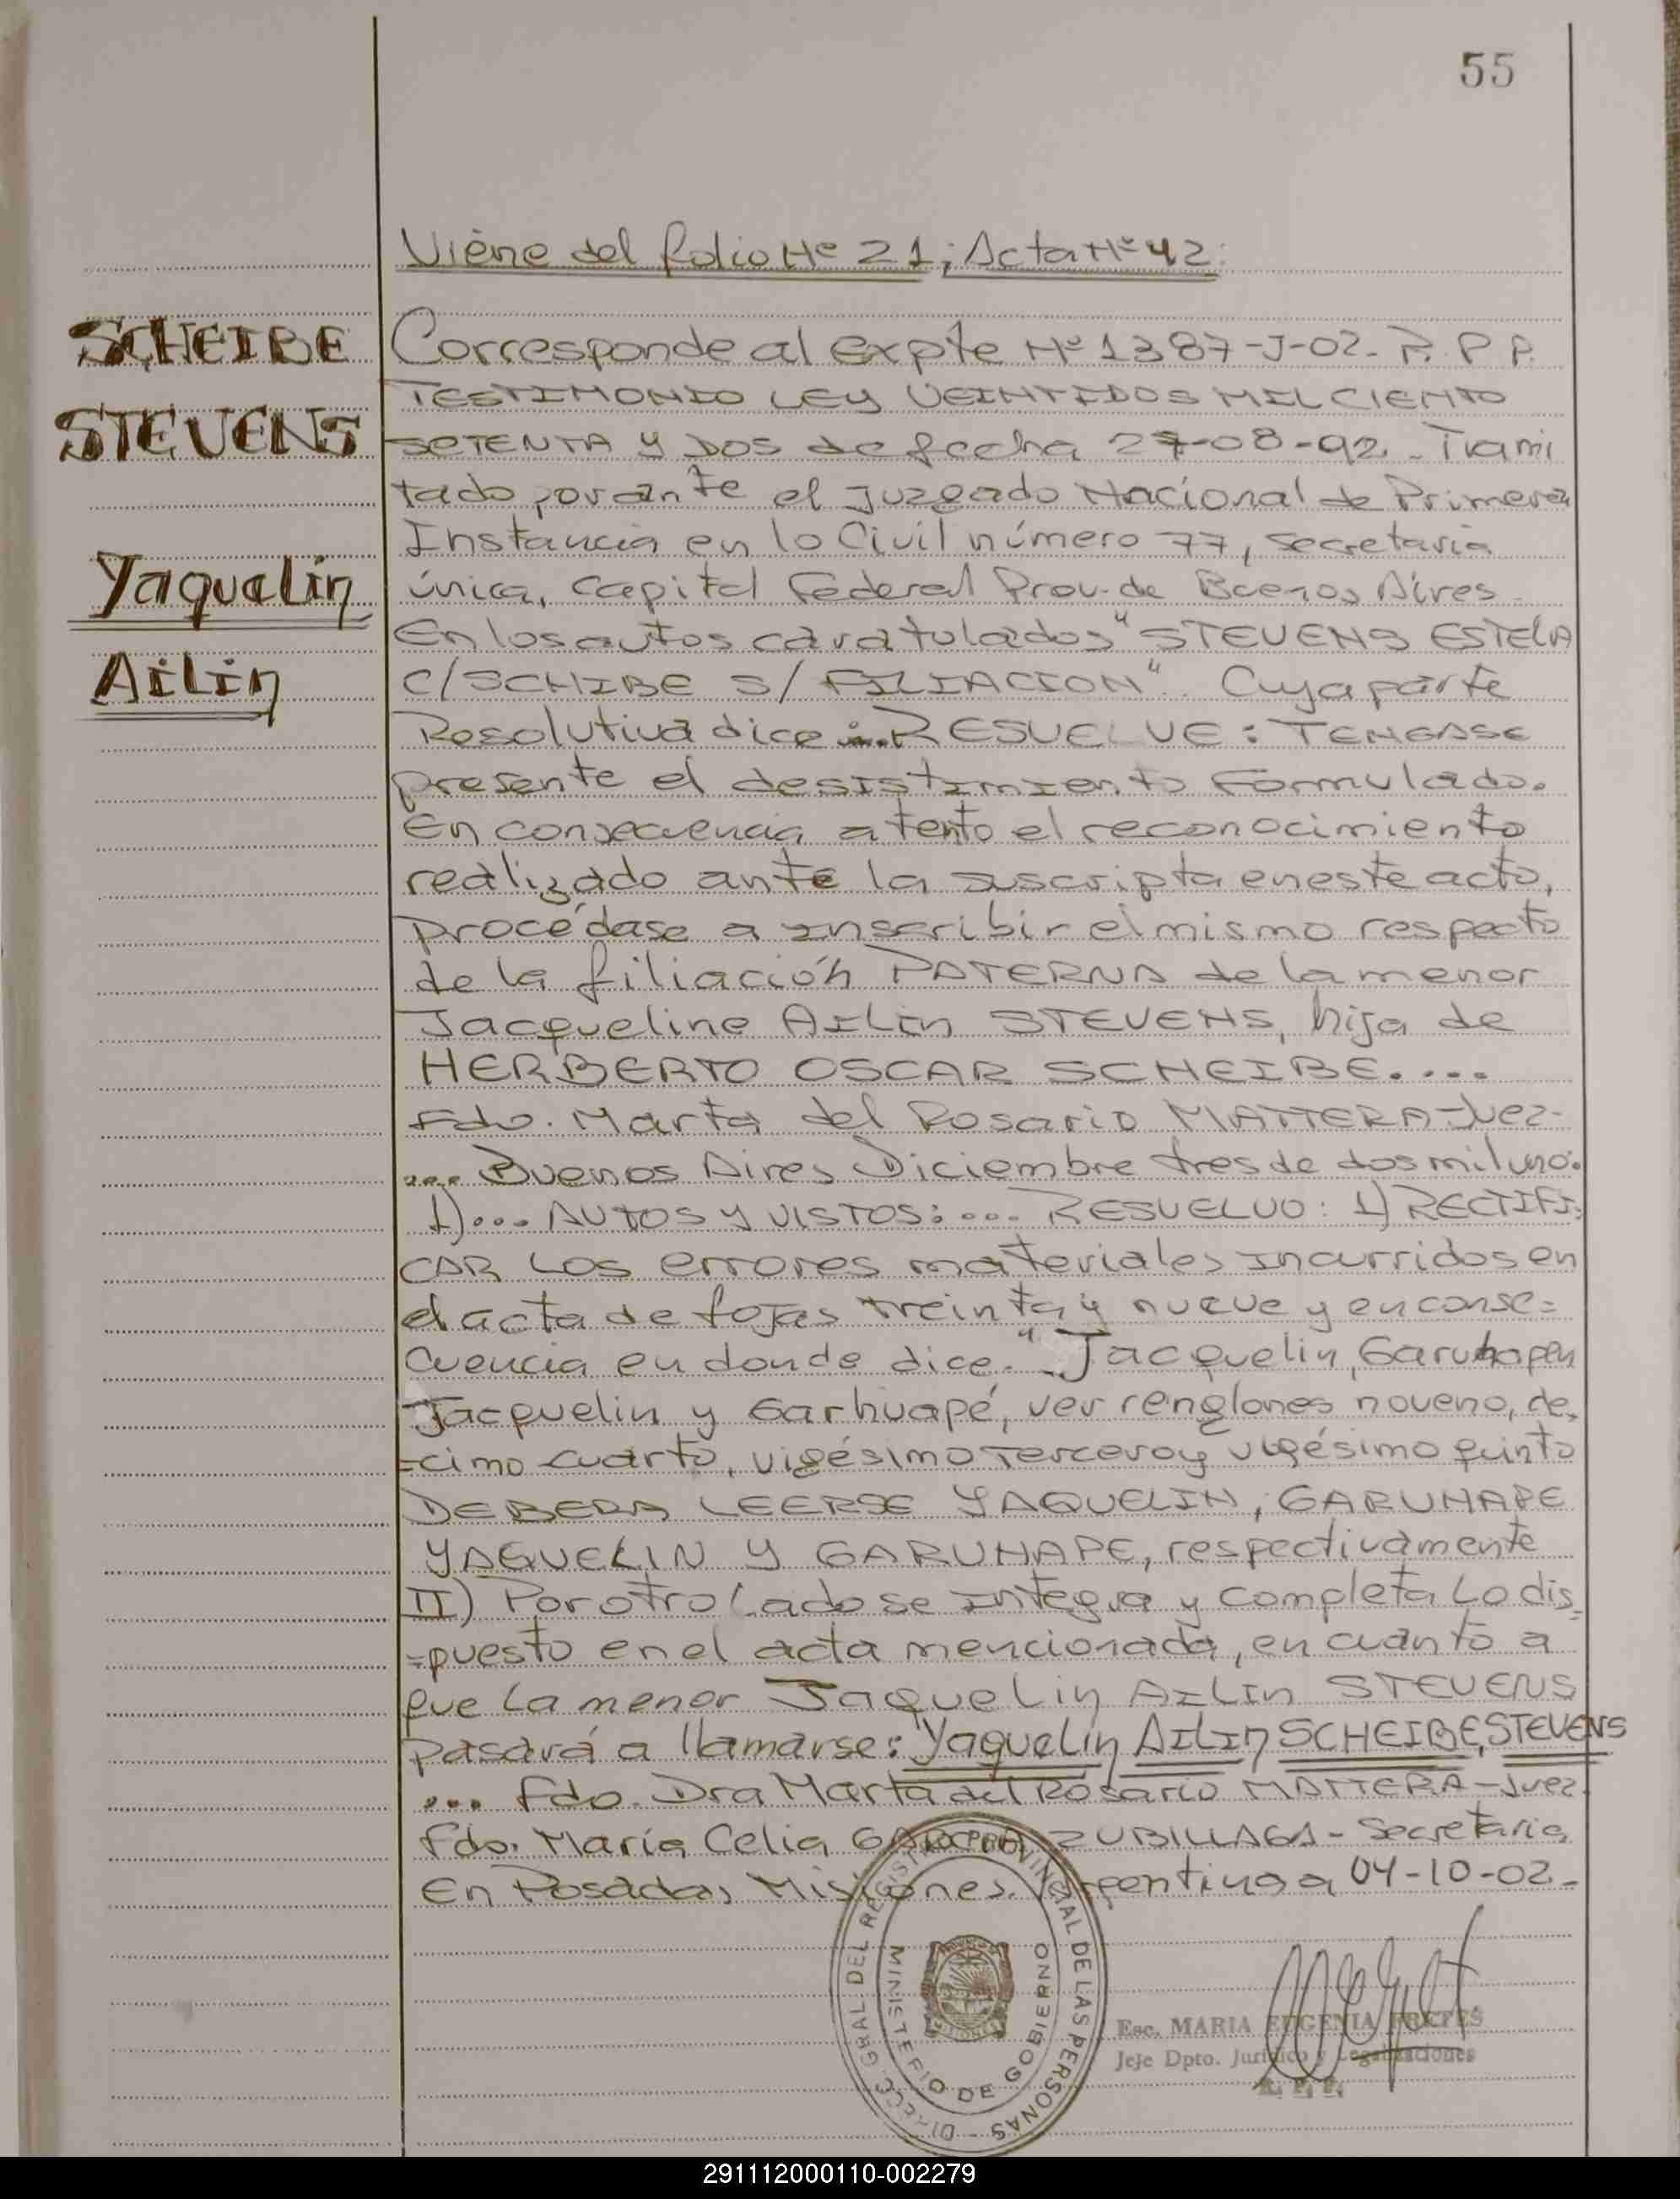 55
Viene del folio Nº 21; Acta Nº 42.
SCHEIBE
STEVENS
Yaquelin
Ailin
Corresponde al expte Nº 1387-J-02- R. P P.
TESTIMONIO LEY VEINTIDOS MIL CIENTO
SETENTA Y DOS de fecha 27-08-92. Trami
tado por ante el Juzgado Nacional de Primera
Instancia en lo Civil número 77, secretaria
única, Capital Federal Prov. de Buenos Aires
En los autos caratulados "STEVENS ESTELA
C/SCHIBE S/ FILIACION". Cuya parte
Resolutiva dice:..RESUELVE: TENGASE
presente el desistimiento Formulado.
En consecuencia atento el reconocimiento
realizado ante la suscripta en este acto,
procédase a inscribir el mismo respecto
de la filiación PATERNA de la menor
Jacqueline AILIN STEVENS, hija de
HERBERTO OSCAR SCHEIBE....
Fdo. Marta del Rosario MATTERA-Juez-
... Buenos Aires Diciembre tres de dos mil uno.
1)... AUTOS Y VISTOS:... RESUELVO: 1) RECTIFI=
CAR LOS errores materiales incurridos en
el acta de fojas treinta y nueve y en conse=
cuencia en donde dice. "Jacquelin, Garuhapen
Jacquelin y Garhuapé, ver renglones noveno, de,
=cimo cuarto, vigésimo tercero y vigésimo quinto
DEBERA LEERSE YAQUELIN, GARUHAPE
YAQUELIN Y GARUHAPE, respectivamente
II) Por otro Lado se integra y completa Lo dis=
=puesto en el acta mencionada, en cuanto a
que La menor Jaquelin AILIN STEVENS
pasará a llamarse: Yaquelin AILIN SCHEIBE STEVENS
... Fdo. Dra Marta del Rosario MATTERA-Juez.
Fdo. María Celia GARCIA ZUBILLAGA- Secretaria
En Posadas, Misiones. Argentina a 04-10-02.-
DIRECC. GRAL. DEL REGISTRO PROVINCIAL DE LAS PERSONAS
MINISTERIO DE GOBIERNO
MISIONES
Esc. MARIA EUGENIA PRETES
Jefe Dpto. Jurídico y Legalizaciones
R. P. P.
291112000110-002279